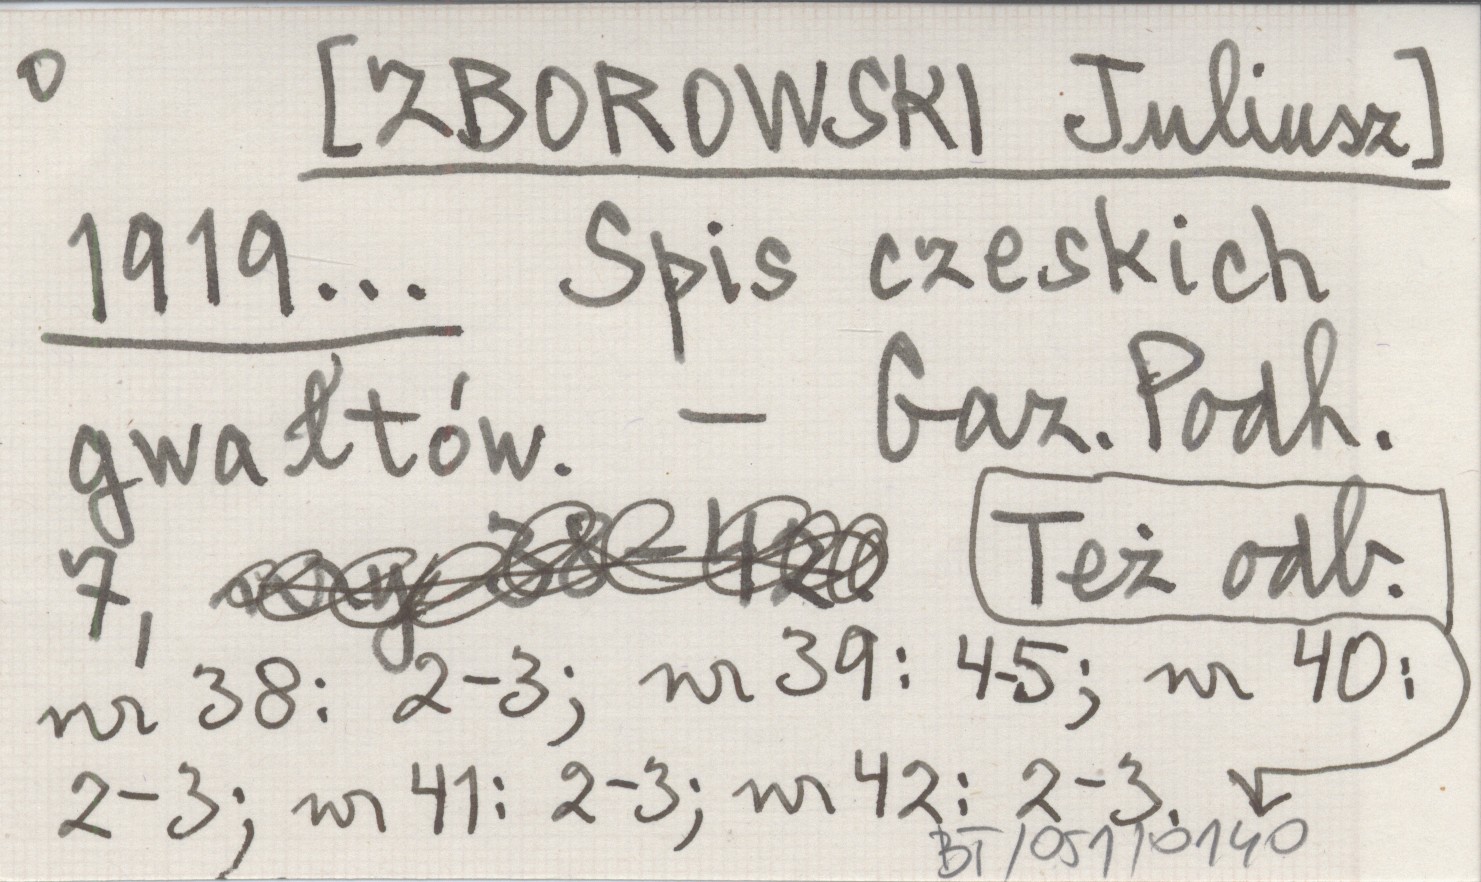 o [ZBOROWSKI Juliusz]
1919... Spis czeskich
gwałtów. — Gaz. Podh.
7, Też odb.
nr 38: 2-3; nr 39: 4-5; nr 40:
2-3; nr 41: 2-3; nr 42: 2-3.
BT/051/0140